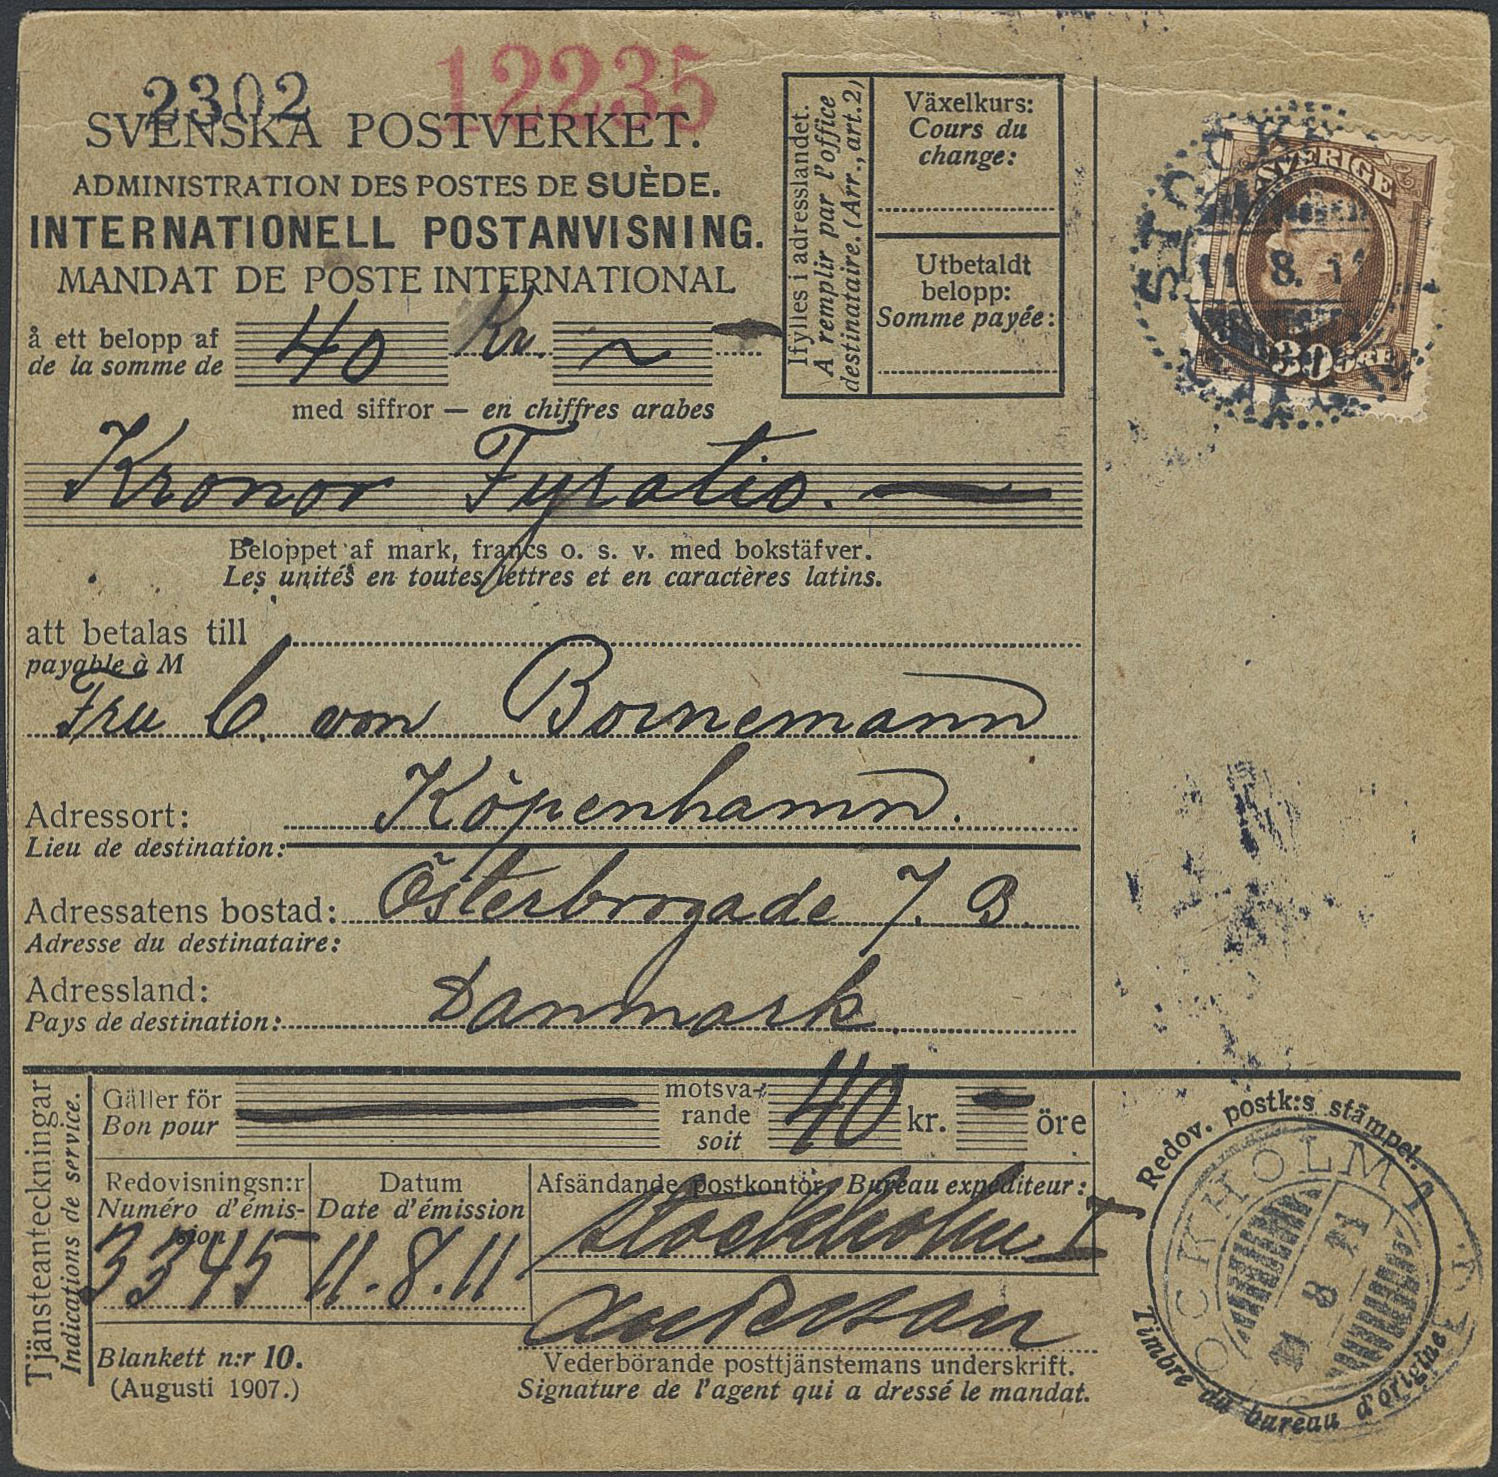 2302
12235
SVENSKA POSTVERKET.
ADMINISTRATION DES POSTES DE SUÈDE.
INTERNATIONELL POSTANVISNING.
MANDAT DE POSTE INTERNATIONAL
å ett belopp af
de la somme de
40 Kr. ~
med siffror — en chiffres arabes
Ifylles i adresslandet.
A remplir par l'office
destinataire. (Arr., art. 2)
Växelkurs:
Cours du
change:
Utbetaldt
belopp:
Somme payée:
SVERIGE
30 ÖRE
11 8. 11
Kronor Fyratio. —
Beloppet af mark, francs o. s. v. med bokstäfver.
Les unités en toutes lettres et en caractères latins.
att betalas till
payable à M
Fru C. von Bornemann
Adressort: Köpenhamn.
Lieu de destination:
Adressatens bostad: Österbrogade 7. B.
Adresse du destinataire:
Adressland: Danmark.
Pays de destination:
Tjänsteanteckningar
Indications de service.
Gäller för
Bon pour
motsva-
rande
soit
40 kr. — öre
Redovisningsn:r
Numéro d'émis-
sion
3345
Datum
Date d'émission
11.8.11
Afsändande postkontor, Bureau expéditeur:
Stockholm I
Anderson
Vederbörande posttjänstemans underskrift.
Signature de l'agent qui a dressé le mandat.
Blankett n:r 10.
(Augusti 1907.)
Redov. postk:s stämpel.
STOCKHOLM 1
11 8 11
Timbre du bureau d'origine